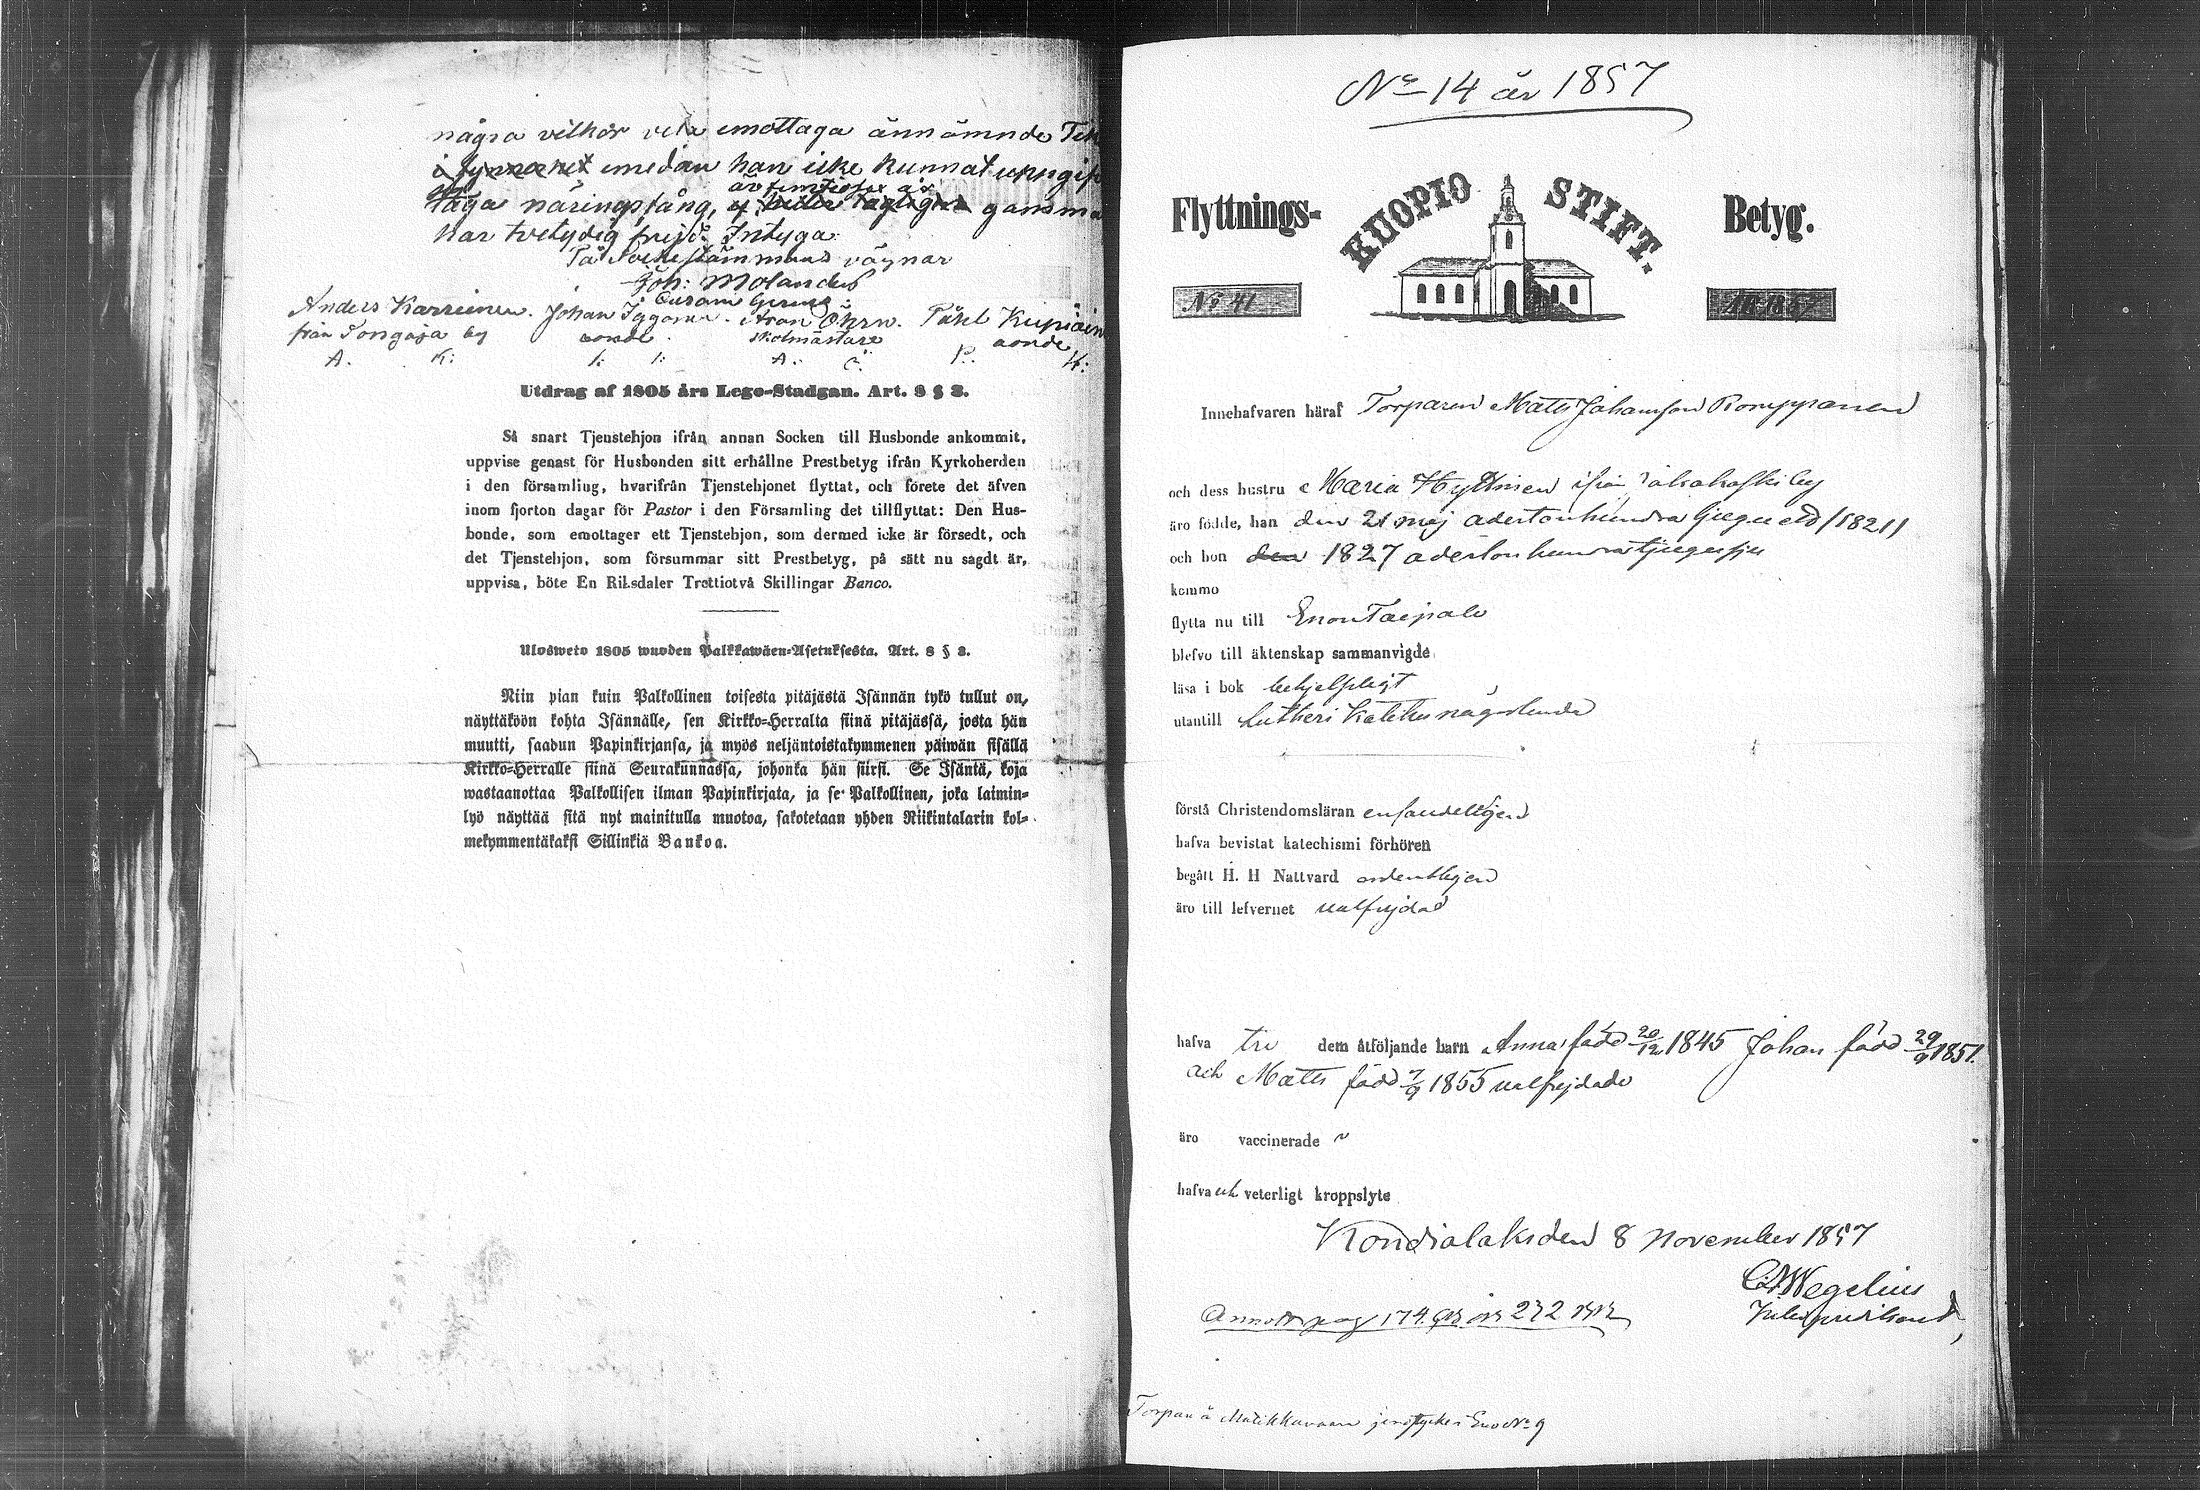 några vilkor vela emottaga ännämnde
emedan han icke kunnat uppgif
laga näringsfång,
har tvetydig frejd. Intyga:
På Sockestämmans vägnar
Joh: Molander
Anders Karreinen. Johan . Aron Öhrn. Påhl Kupiain
från Tongaja by bonde Skolmästare bonde
A. K: I: I: A. Ö. P. K:
Utdrag af 1805 års Lego-Stadgan. Art. 8 § 3.
Så snart Tjenstehjon ifrån annan Socken till Husbonde ankommit,
uppvise genast för Husbonden sitt erhållne Prestbetyg ifrån Kyrkoherden
i den församling, hvarifrån Tjenstehjonet flyttat, och förete det äfven
inom fjorton dagar för Pastor i den Församling det tillflyttat: Den Hus-
bonde, som emottager ett Tjenstehjon, som dermed icke är försedt, och
det Tjenstehjon, som försummar sitt Prestbetyg, på sätt nu sagdt är,
uppvisa, böte En Riksdaler Trettiotvå Skillingar Banco.
Ulosweto 1805 wuoden Palkkawäen-Asetuksesta. Art. 8 § 3.
Niin pian kuin Palkollinen toisesta pitäjästä Isännän tykö tullut on,
näyttäköön kohta Isännälle, sen Kirkko-Herralta siinä pitäjässä, josta hän
muutti, saadun Papinkirjansa, ja myös neljäntoistakymmenen päiwän sisällä
Kirkko-Herralle siinä Seurakunnassa, johonka hän siirsi. Se Isäntä, koja
wastaanottaa Palkollisen ilman Papinkirjata, ja se Palkollinen, joka laimin-
lyö näyttää sitä nyt mainitulla muotoa, sakotetaan yhden Riikintalarin kol-
mekymmentäkaksi Sillinkiä Bankoa.
No 14 år 1857
Flyttnings- KUOPIO STIFT. Betyg.
No 41 År 1857
Innehafvaren häraf Torparen Matts Johansson Romppanen
och dess hustru Maria Hyttinen ifrån by
äro födde, han den 21 maj adertonhundra tjugu ett /1821/
och hon den 1827 adertonhundratjugusju
komme
flytta nu till Enon Taipale
blefvo till äktenskap sammanvigde
läsa i bok behjelpligt
utantill Lutheri Kateches någorlunda
förstå Christendomsläran enfaldeligen
hafva bevistat katechismi förhören
begått H. H Nattvard ordentligen
äro till lefvernet välfrejdad
hafva tre dem åtföljande barn Anna född 20/12 1845 Johan född 29/9 1851.
och Matts född 7/9 1855 välfrejdade
äro vaccinerade
hafva ick veterligt kroppslyte
Kondialaks den 8 November 1857
C. Wegelius
Annot pag 174 och 232
Torpare å i Eno No 9